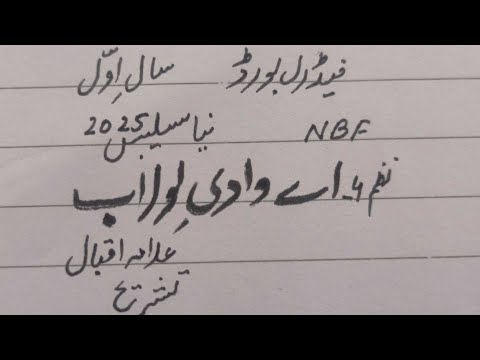 فیڈرل بورڈ سال اوّل
NBF نیا سلیبس 2025
نظم 4۔ اے وادیِ لولاب
علامہ اقبال
تشریح